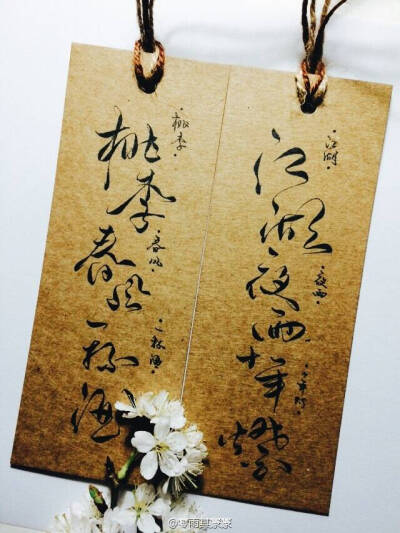 桃李春风一杯酒
·桃李·
·春风·
·一杯酒·
江湖夜雨十年燈
·江湖·
·夜雨·
·十年灯·